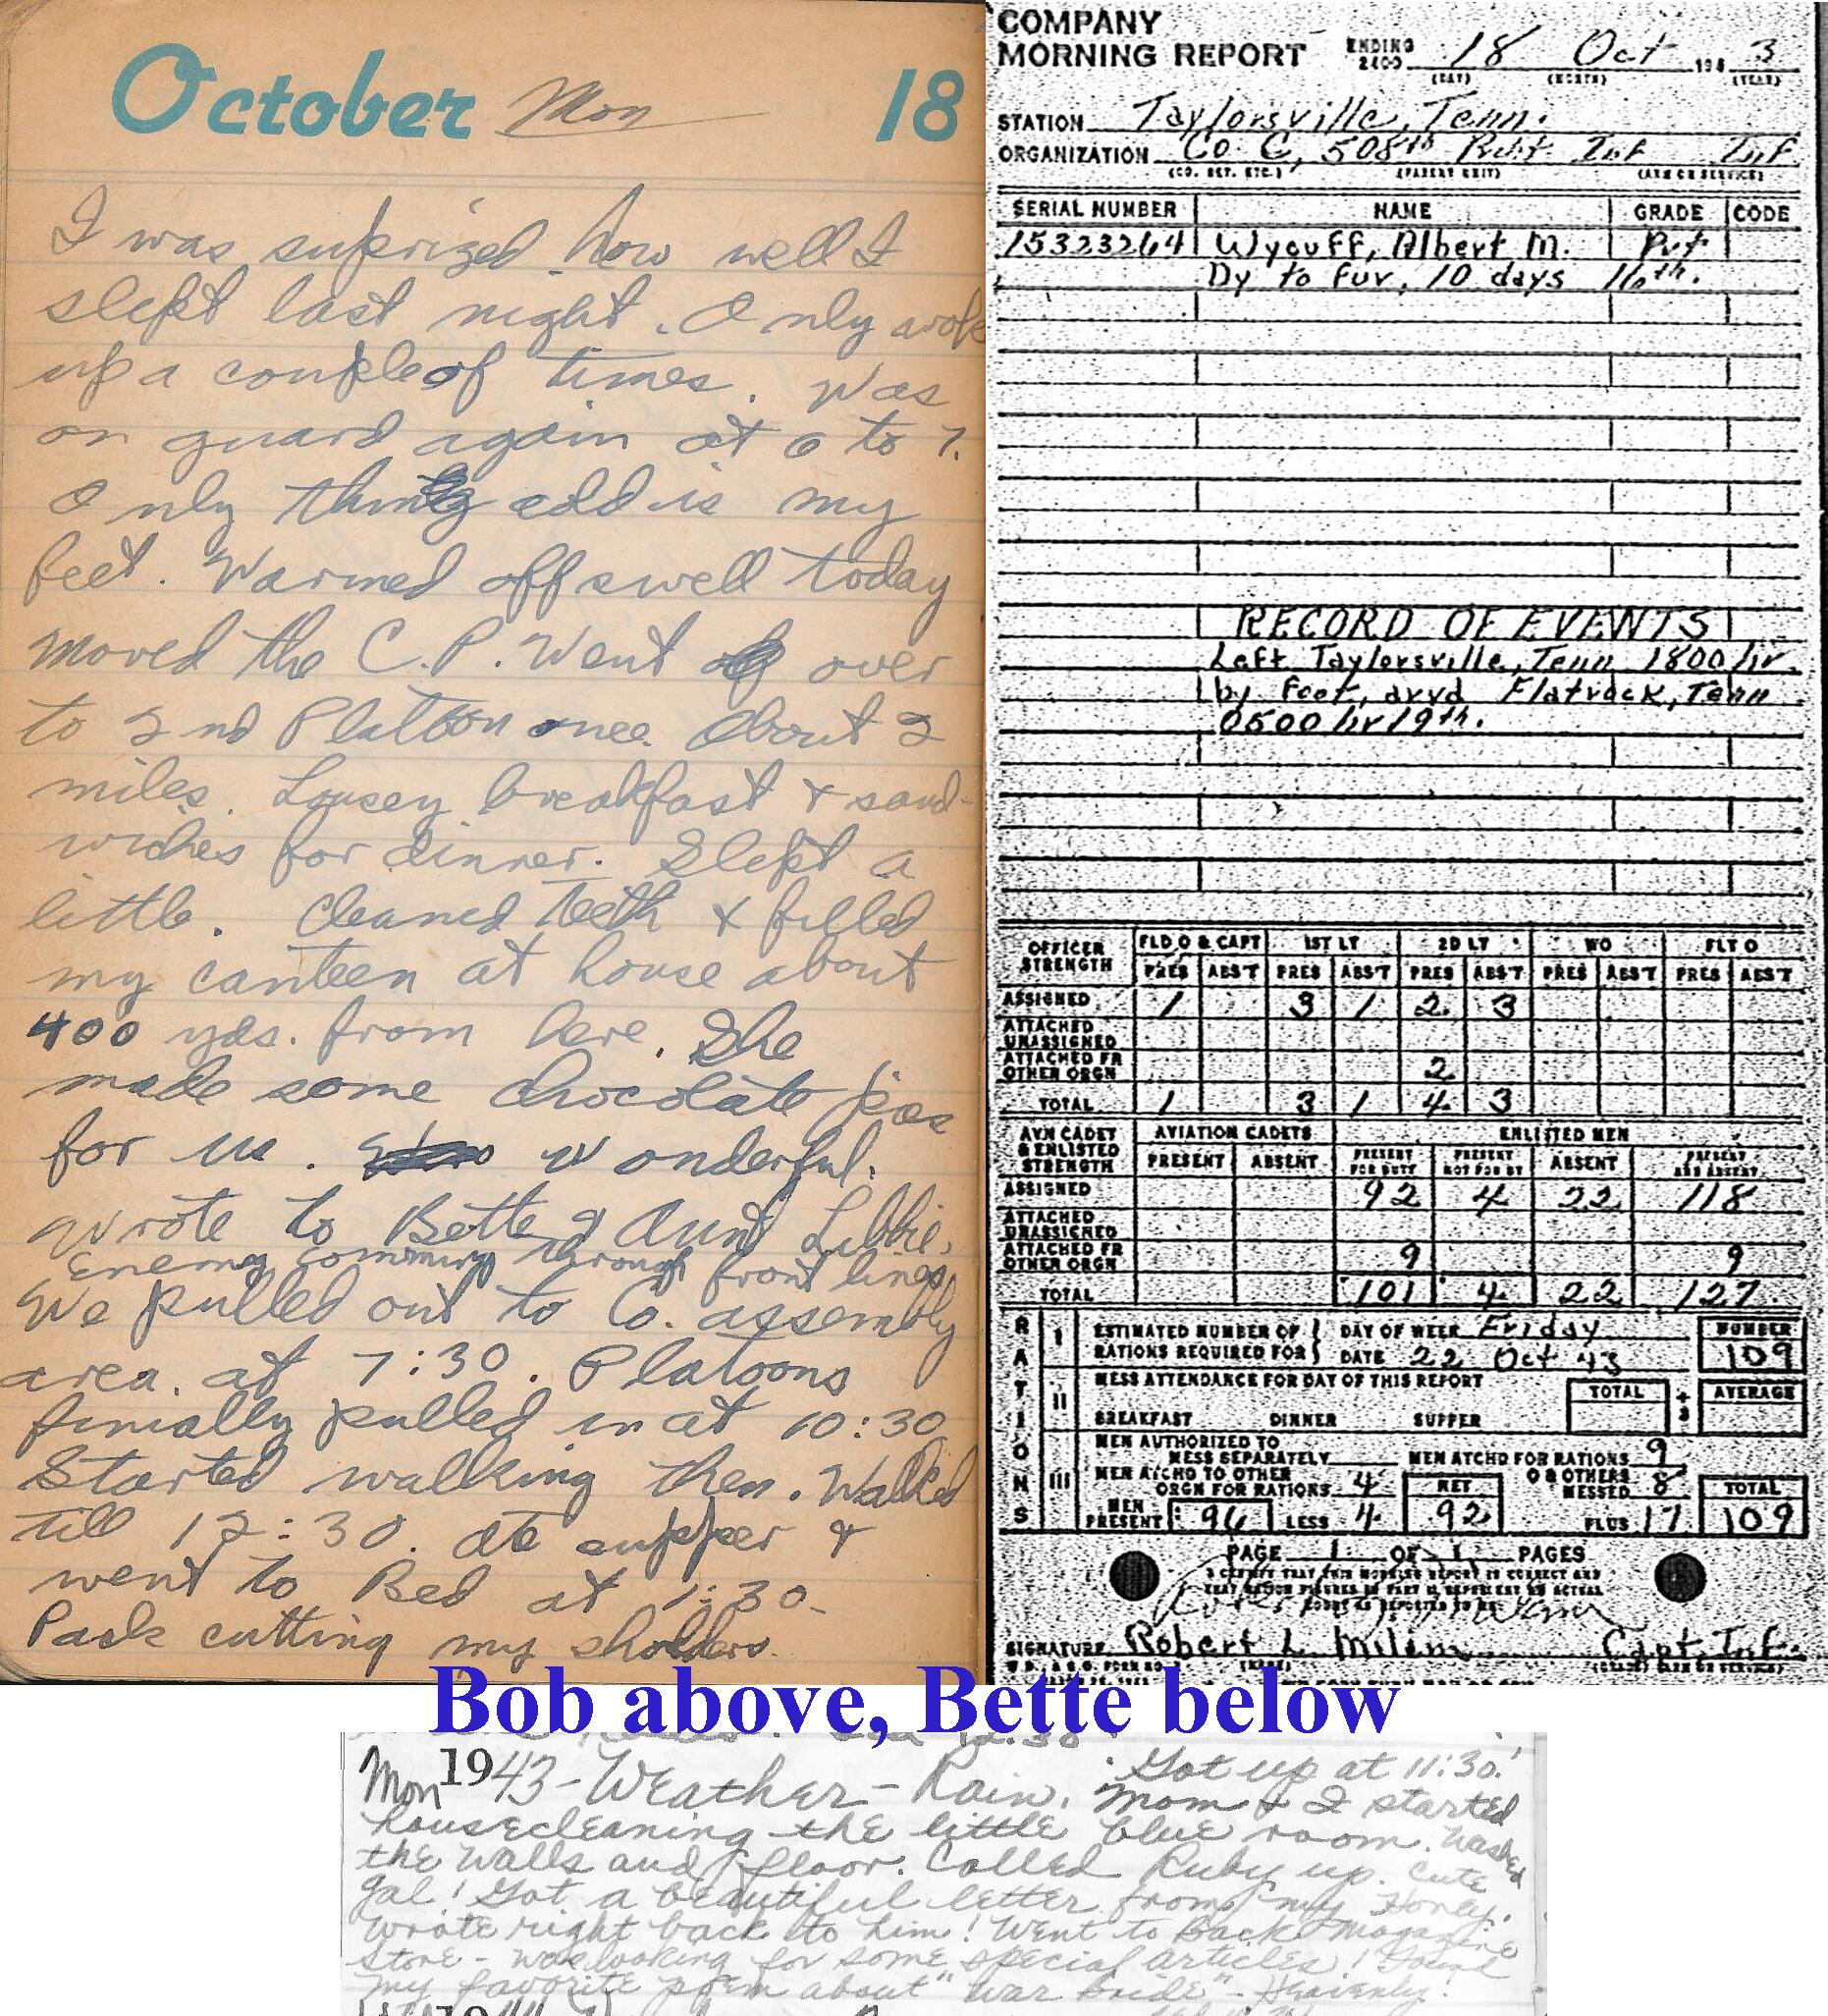 October Mon 18
I was suprized how well I
slept last night. Only woke
up a couple of times. Was
on guard again at 6 to 7.
Only thing cold is my
feet. Warmed off swell today
moved the C.P. Went over
to 2nd Platoon once. About 2
miles. Lousey breakfast & sand-
wiches for dinner. Slept a
little. Cleaned teeth & filled
my canteen at house about
400 yds. from here. She
made some chocolate pies
for us. Wonderful.
Wrote to Bette & Aunt Libbie.
Enemy comming through front lines
We pulled out to Co. assembly
area at 7:30. Platoons
finially pulled in at 10:30
Started walking then. Walked
till 12:30. Ate supper &
went to Bed at 1:30.
Pack cutting my sholders.
COMPANY
MORNING REPORT ENDING 2400 18 Oct 194 3
(DAY) (MONTH) (YEAR)
STATION Taylorsville, Tenn.
ORGANIZATION Co C, 508th Prcht Inf Inf
(CO. DET. ETC.) (PARENT UNIT) (ARM OR SERVICE)
SERIAL NUMBER NAME GRADE CODE
15323264 Wycuff, Albert M. Pvt
Dy to fur, 10 days 16th.
RECORD OF EVENTS
Left Taylorsville, Tenn 1800 hr
by foot, arvd Flatrock, Tenn
0500 hr 19th.
OFFICER STRENGTH FLD O & CAPT 1ST LT 2D LT WO FLT O
PRES ABS'T PRES ABS'T PRES ABS'T PRES ABS'T PRES ABS'T
ASSIGNED 1 3 1 2 3
ATTACHED UNASSIGNED
ATTACHED FR OTHER ORGN 2
TOTAL 1 3 1 4 3
AVN CADET & ENLISTED STRENGTH AVIATION CADETS ENLISTED MEN
PRESENT ABSENT PRESENT FOR DUTY PRESENT NOT FOR DY ABSENT PRESENT AND ABSENT
ASSIGNED 92 4 22 118
ATTACHED UNASSIGNED
ATTACHED FR OTHER ORGN 9 9
TOTAL 101 4 22 127
RATIONS
I ESTIMATED NUMBER OF RATIONS REQUIRED FOR DAY OF WEEK Friday NUMBER
DATE 22 Oct 43 109
II MESS ATTENDANCE FOR DAY OF THIS REPORT TOTAL ÷ 3 AVERAGE
BREAKFAST DINNER SUPPER
III MEN AUTHORIZED TO MESS SEPARATELY MEN ATCHD FOR RATIONS 9
MEN ATCHD TO OTHER ORGN FOR RATIONS 4 NET O & OTHERS MESSED 8 TOTAL
MEN PRESENT 96 LESS 4 92 PLUS 17 109
PAGE 1 OF 1 PAGES
I CERTIFY THAT THIS MORNING REPORT IS CORRECT AND
SIGNATURE Robert L. Milam Capt, Inf.
Bob above, Bette below
12:30
Mon 1943 - Weather - Rain. Got up at 11:30!
Mom & I started
housecleaning the little blue room. Washed
the walls and floor. Called Ruby up. Cute
gal! Got a beautiful letter from my Honey.
Wrote right back to him! Went to Back Magazine
Store - was looking for some special articles! Found
my favorite poem about "War Bride" - Heavenly!